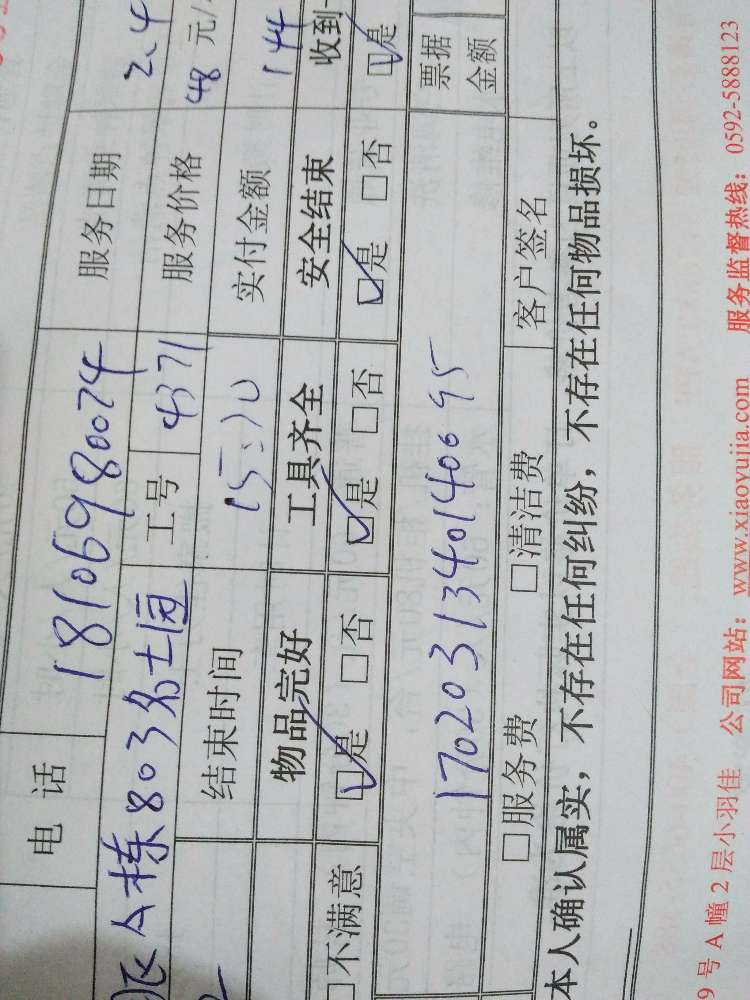 电 话 18106980074 服务日期 2.4
A栋803名士园 工号 4371 服务价格 48 元/
结束时间 15:20 实付金额 144
物品完好 工具齐全 安全结束 收到
□不满意 ☑是 □否 ☑是 □否 ☑是 □否 ☑是
17020313401400695 票据金额
□服务费 □清洁费 客户签名
本人确认属实，不存在任何纠纷，不存在任何物品损坏。
9号A幢2层小羽佳 公司网站：www.xiaoyujia.com 服务监督热线：0592-5888123